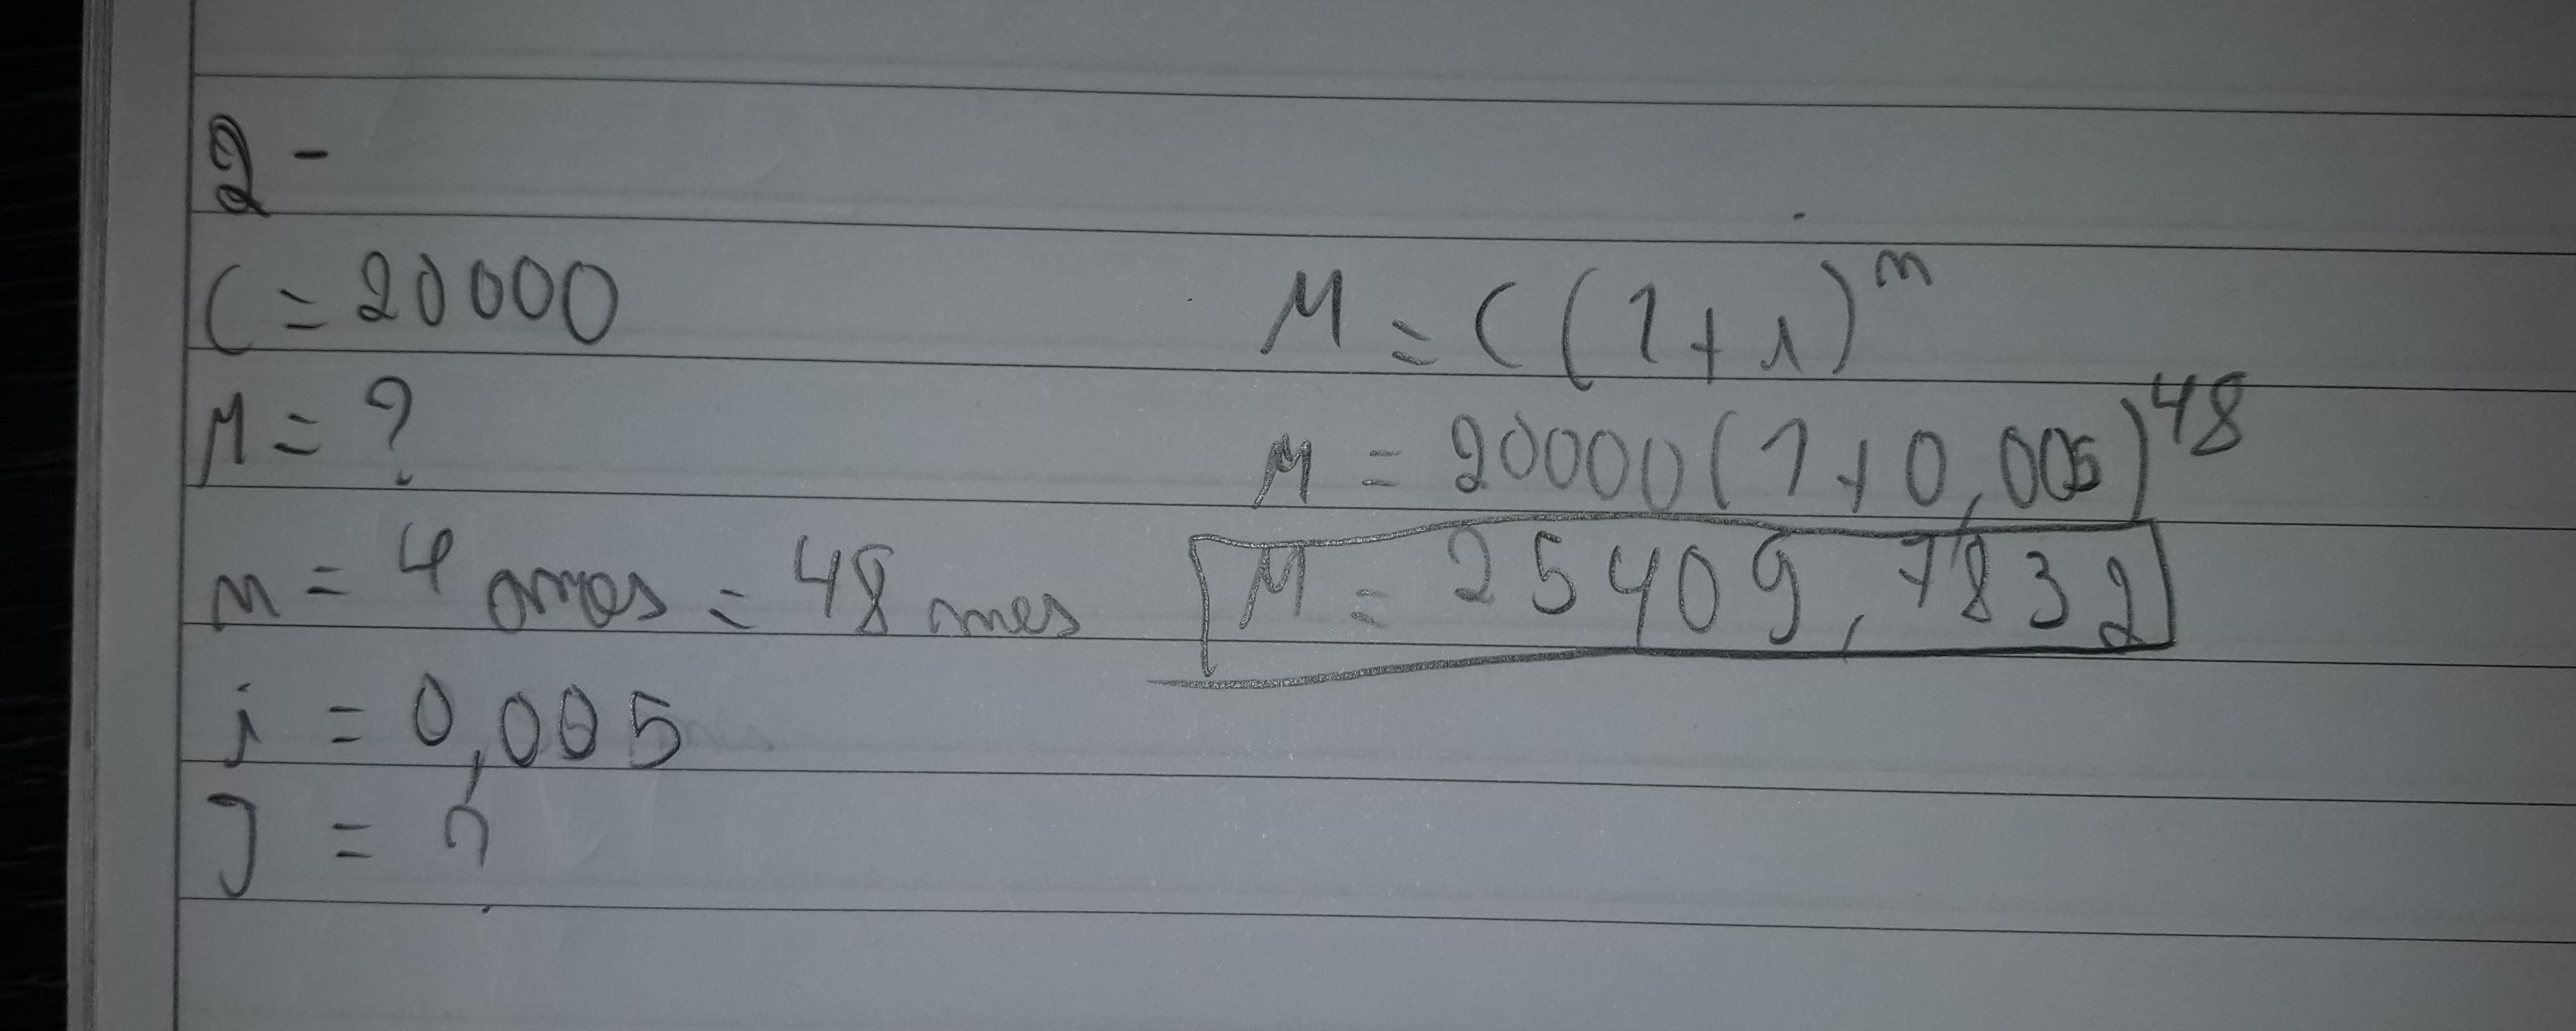 2 -
C = 20000
M = ?
n = 4 anos = 48 mes
i = 0,005
J = ?
M = C(1+i)^n
M = 20000(1+0,005)^48
M = 25409,7832